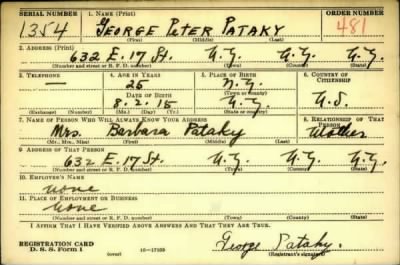 SERIAL NUMBER 1. NAME (Print) ORDER NUMBER
1354 GEORGE PETER PATAKY 481
(First) (Middle) (Last)
2. ADDRESS (Print)
632 E. 17 St. N.Y. N.Y. N.Y.
(Number and street or R. F. D. number) (Town) (County) (State)
3. TELEPHONE 4. AGE IN YEARS 5. PLACE OF BIRTH 6. COUNTRY OF CITIZENSHIP
— 25 N.Y.
DATE OF BIRTH (Town or county)
8. 2. 15 N.Y. U.S.
(Exchange) (Number) (Mo.) (Day) (Yr.) (State or country)
7. NAME OF PERSON WHO WILL ALWAYS KNOW YOUR ADDRESS 8. RELATIONSHIP OF THAT PERSON
Mrs. Barbara Pataky Mother
(Mr., Mrs., Miss) (First) (Middle) (Last)
9. ADDRESS OF THAT PERSON
632 E. 17 St. N.Y. N.Y. N.Y.
(Number and street or R. F. D. number) (Town) (County) (State)
10. EMPLOYER'S NAME
None
11. PLACE OF EMPLOYMENT OR BUSINESS
None
(Number and street or R. F. D. number) (Town) (County) (State)
I AFFIRM THAT I HAVE VERIFIED ABOVE ANSWERS AND THAT THEY ARE TRUE.
REGISTRATION CARD George Pataky.
D. S. S. FORM 1 (over) 16—17105 (Registrant's signature)